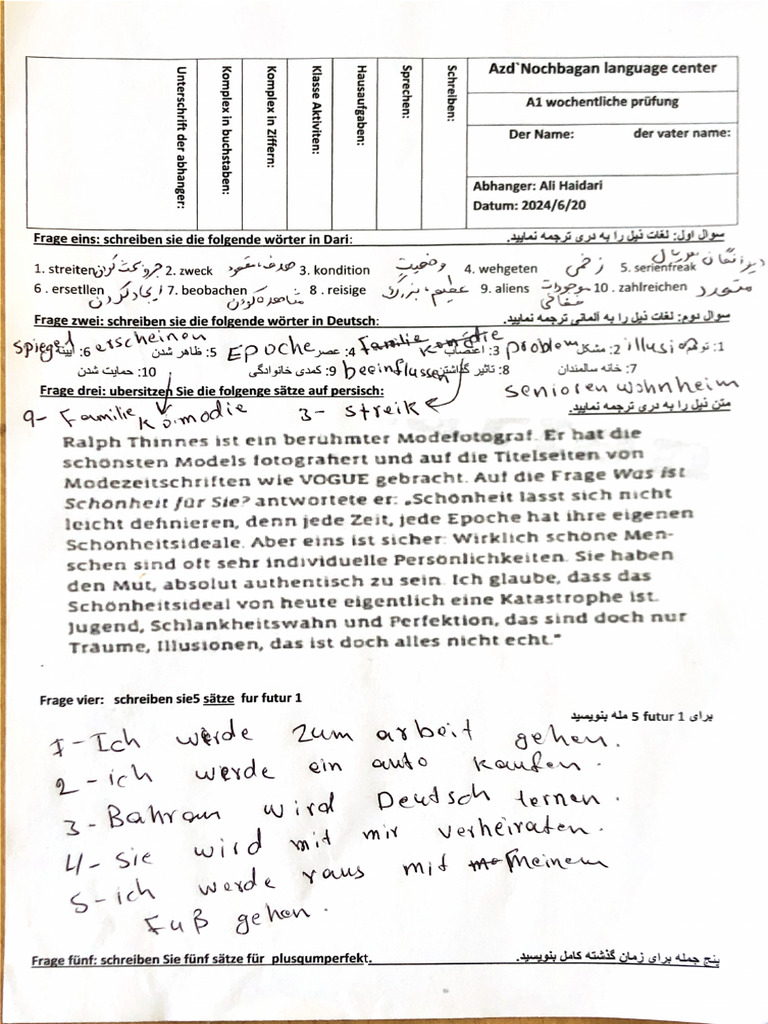 Azd`Nochbagan language center
A1 wochentliche prüfung
Der Name: der vater name:
Abhanger: Ali Haidari
Datum: 2024/6/20
Schreiben:
Sprechen:
Hausaufgaben:
Klasse Aktiviten:
Komplex in Ziffern:
Komplex in buchstaben:
Unterschrift der abhanger:
Frage eins: schreiben sie die folgende wörter in Dari: سوال اول: لغات ذیل را به دری ترجمه نمایید.
1. streiten جروبحث کردن 2. zweck هدف، مقصود 3. kondition وضعیت 4. wehgeten زخمی 5. serienfreak دیوانگان سریال
6 . ersetllen ایجاد کردن 7. beobachen مشاهده کردن 8 . reisige عظیم، بزرگ 9. aliens موجودات فضائی 10 . zahlreichen متعدد
Frage zwei: schreiben sie die folgende wörter in Deutsch: سوال دوم: لغات ذیل را به آلمانی ترجمه نمایید.
1: توهم illusion 2: مشکل problem 3: اعتصاب Familie komödie 4: عصر Epoche 5: ظاهر شدن erscheinen 6: آیینه spiegel
7: خانه سالمندان senioren wohnheim 8: تاثیر گذاشتن beeinflussen 9: کمدی خانوادگی 10: حمایت شدن
Frage drei: ubersitzen Sie die folgenge sätze auf persisch: متن ذیل را به دری ترجمه نمایید.
9- Familie komodie 3- streik
Ralph Thinnes ist ein berühmter Modefotograf. Er hat die
schönsten Models fotografiert und auf die Titelseiten von
Modezeitschriften wie VOGUE gebracht. Auf die Frage Was ist
Schönheit für Sie? antwortete er: „Schönheit lässt sich nicht
leicht definieren, denn jede Zeit, jede Epoche hat ihre eigenen
Schönheitsideale. Aber eins ist sicher: Wirklich schöne Men-
schen sind oft sehr individuelle Persönlichkeiten. Sie haben
den Mut, absolut authentisch zu sein. Ich glaube, dass das
Schönheitsideal von heute eigentlich eine Katastrophe ist.
Jugend, Schlankheitswahn und Perfektion, das sind doch nur
Träume, Illusionen, das ist doch alles nicht echt."
Frage vier: schreiben sie5 sätze fur futur 1 برای futur 1 5 مله بنویسید
1- Ich werde zum arbeit gehen.
2- ich werde ein auto kaufen.
3- Bahram wird Deutsch lernen.
4- Sie wird mit mir verheiraten.
5- ich werde raus mit meinem
Fuß gehen.
Frage fünf: schreiben Sie fünf sätze für plusqumperfekt. پنج جمله برای زمان گذشته کامل بنویسید.